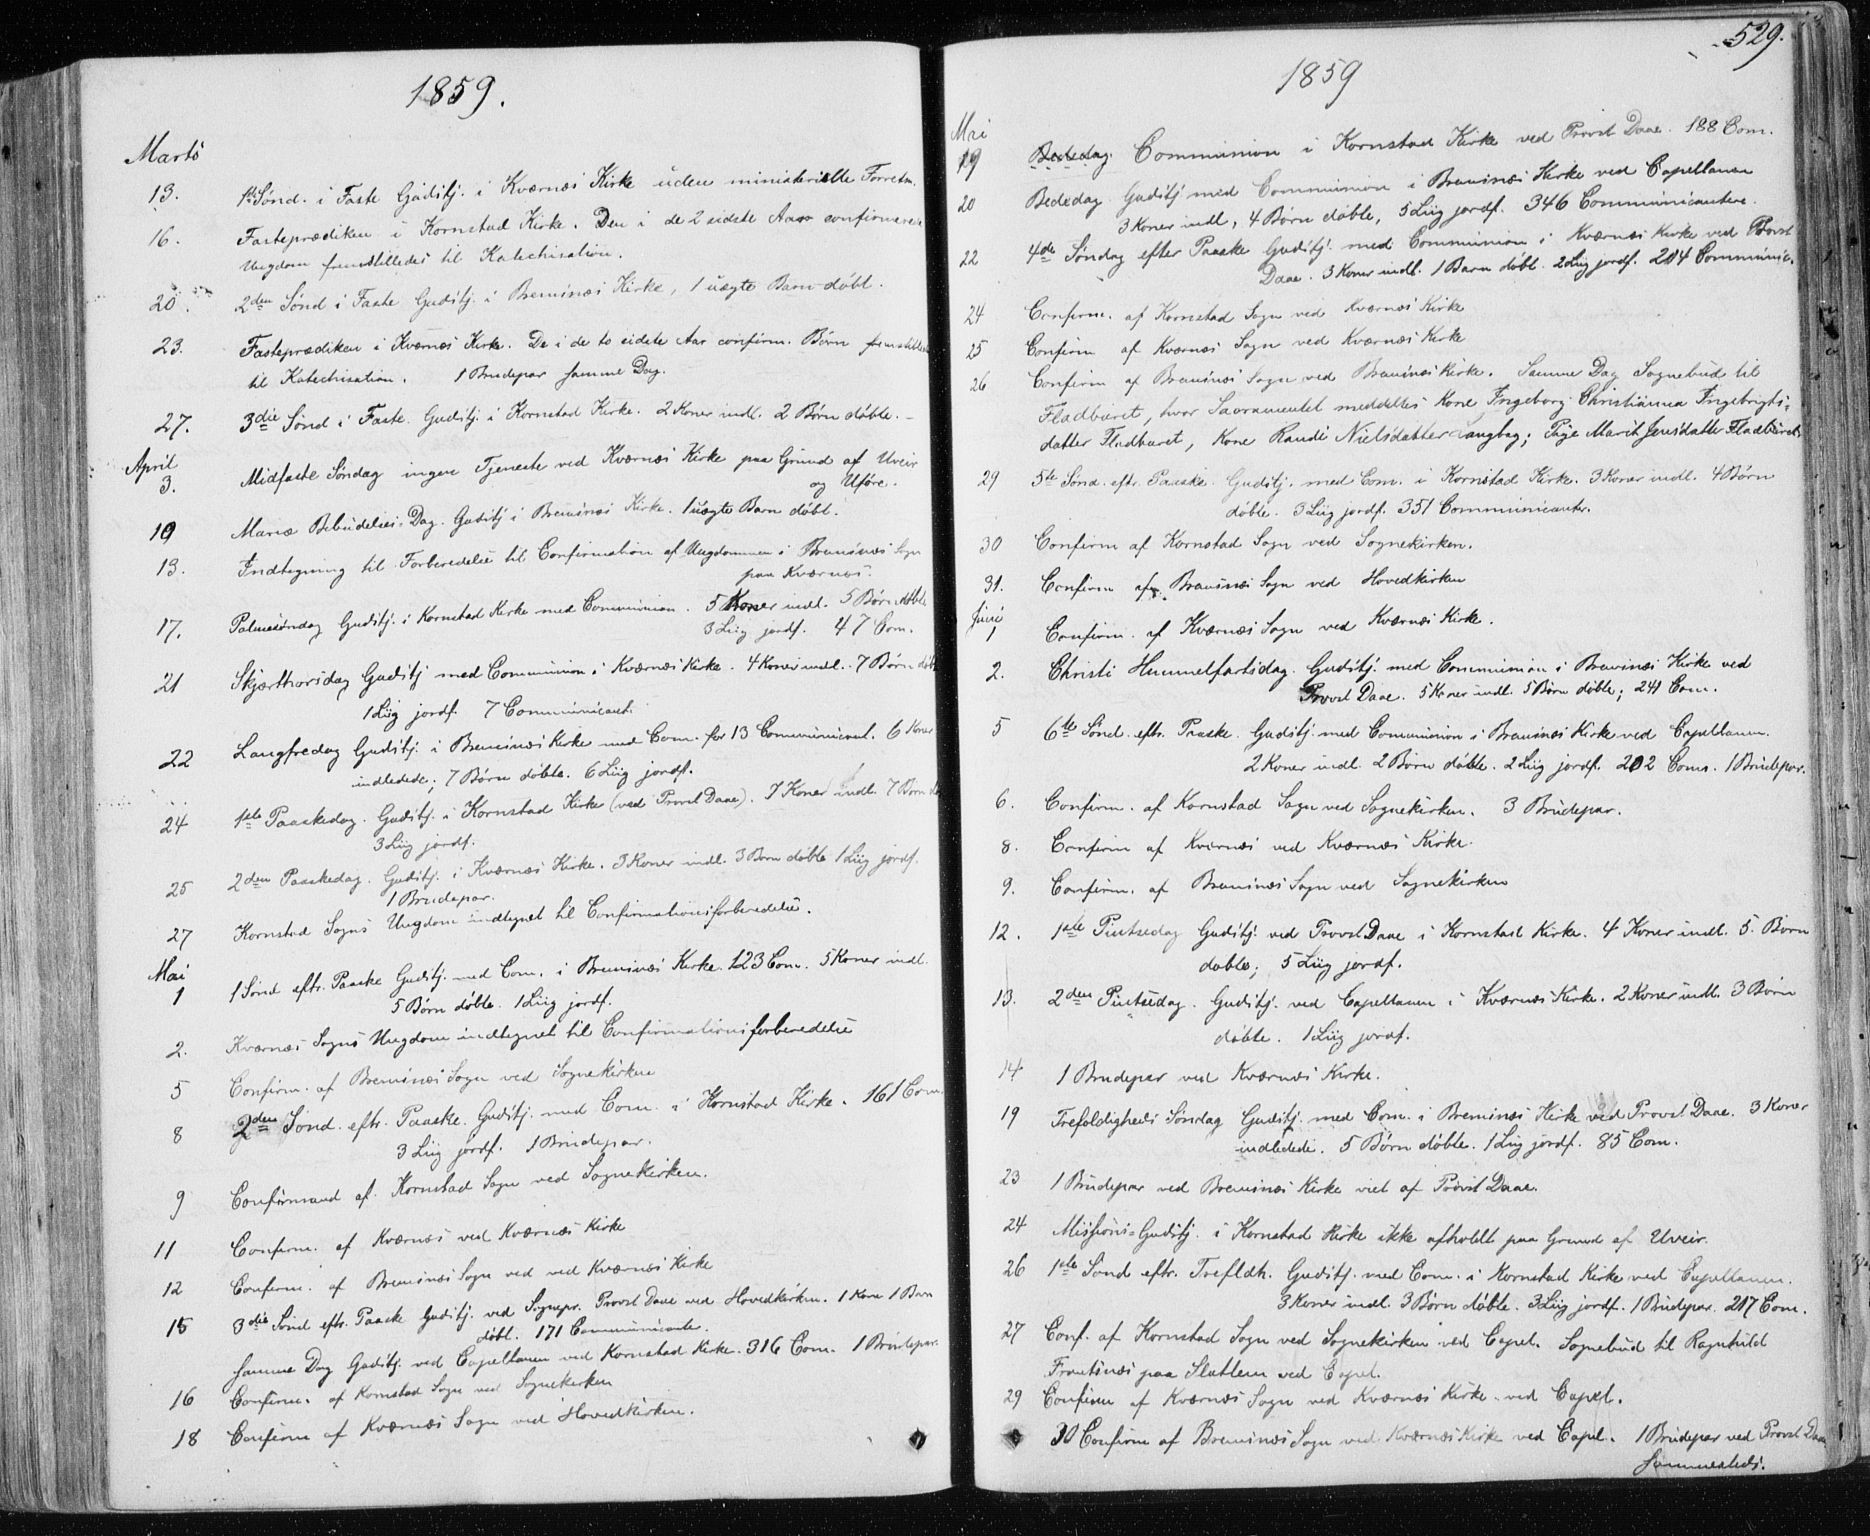 1859.
Marts
13. 1ste Sønd. i Faste Gudstj. i Kværnæs Kirke uden ministerielle Forretn.
16. Fasteprædiken i Kornstad Kirke. Den i de 2 sidste Aar confirmerede
Ungdom fremstilledes til Katechisation.
20. 2den Sønd i Faste Gudstj. i Bremsnæs Kirke, 1 uægte Barn døbt.
23. Fasteprædiken i Kværnæs Kirke. De i de to sidste Aar confirm. Børn fremstilledes
til Katechisation. 1 Brudepar samme Dag.
27. 3die Sønd i Faste Gudstj. i Kornstad Kirke. 2 Koner indl. 2 Børn døbte. —
April
3. Midfaste Søndag ingen Tjeneste ved Kværnæs Kirke paa Grund af Uveir
og Uføre.
10 Mariæ Bebudelses-Dag. Gudstj i Bremsnæs Kirke. 1 uægte Barn døbt.
13. Indtegning til Forberedelse til Confirmation af Ungdommen i Bremsnæs Sogn
paa Kværnæs.
17. Palmesøndag Gudstj. i Kornstad Kirke med Communion. 5 Koner indl. 5 Børn døbte
3 Liig jordf. 47 Com.
21 Skjærthorsdag Gudstj med Communion i Kværnæs Kirke. 4 Koner indl. 7 Børn døbt
1 Liig jordf. 7 Communicant.
22 Langfredag Gudstj. i Bremsnæs Kirke med Com. for 13 Communicant. 6 Koner
indledede; 7 Børn døbte. 6 Liig jordf.
24 1ste Paaskedag. Gudstj. i Kornstad Kirke (ved Provst Daae). 7 Koner indl. 7 Børn dø
3 Liig jordf.
25 2den Paaskedag. Gudstj. i Kværnæs Kirke. 3 Koner indl. 3 Børn døbte 1 Liig jordf.
1 Brudepar.
27 Kornstad Sogns Ungdom indtegnet til Confirmationsforberedelse.
Mai
1 1 Sønd eftr. Paaske Gudstj. med Com. i Bremsnæs Kirke. 123 Com. 5 Koner indl.
5 Børn døbte. 1 Liig jordf.
2. Kværnæs Sogns Ungdom indtegnet til Confirmationsforberedelse
5 Confirm. af Bremsnæs Sogn ved Sognekirken
8 2den Sønd. eftr. Paaske. Gudstj. med Com. i Kornstad Kirke. 161 Com.
3 Liig jordf. 1 Brudepar.
9 Confirmand af Kornstad Sogn ved Sognekirken.
11 Confirm. af Kværnæs ved Kværnæs Kirke
12 Confirm. af Bremsnæs Sogn ved ved Kværnæs Kirke
15 3die Sønd eftr. Paaske Gudstj. ved Sognepr. Provst Daae ved Hovedkirken. 1 Kone 1 Barn
døbt. 171 Communicanter.
Samme Dag Gudstj. ved Capellanen ved Kornstad Kirke. 316 Com. 1 Brudepar.
16 Confirm. af Kornstad Sogn ved Sognekirken
18 Confirm af Kværnæs Sogn ved Hovedkirken.
529.
1859
Mai
19 Bededag. Communion i Kornstad Kirke ved Provst Daae. 188 Com.
20 Bededag Gudstj med Communion i Bremsnæs Kirke ved Capellanen
3 Koner indl, 4 Børn døbte, 5 Liig jordf. 346 Communicantere.
22 4de Søndag efter Paaske Gudstj. med Communion i Kværnæs Kirke ved Provst
Daae. 3 Koner indl. 1 Barn døbt. 2 Liig jordf. 204 Communic.
24 Confirm. af Kornstad Sogn ved Kværnæs Kirke
25 Confirm af Kværnæs Sogn ved Kværnæs Kirke
26 Confirm af Bremsnæs Sogn ved Bremsnæs Kirke. Samme Dag Sognebud til
Fladburet, hvor Sacramentet meddeltes Kone Ingeborg Christianna Ingebrigts-
datter Fladburet, Kone Randi Nielsdatter Langbog; Pige Marit Jensdatter Fladburet.
29 5te Sønd. eftr. Paaske. Gudstj. med Com. i Kornstad Kirke. 3 Koner indl. 4 Børn
døbte. 3 Liig jordf. 351 Communicanter.
30 Confirm af Kornstad Sogn ved Sognekirken.
31. Confirm af Bremsnæs Sogn ved Hovedkirken
Juni
1 Confirm. af Kværnæs Sogn ved Kværnæs Kirke.
2. Christi Himmelfartsdag. Gudstj. med Communion i Bremsnæs Kirke ved
Provst Daae. 5 Koner indl. 5 Børn døbte; 241 Com.
5 6te Sønd. eftr. Paaske. Gudstj. med Communion i Bremsnæs Kirke ved Capellanen.
2 Koner indl. 2 Børn døbte. 2 Liig jordf. 202 Com. 1 Brudepar.
6. Confirm. af Kornstad Sogn ved Sognekirken. 3 Brudepar.
8. Confirm af Kværnæs ved Kværnæs Kirke.
9. Confirm. af Bremsnæs Sogn ved Sognekirken
12. 1ste Pintsedag Gudstj. ved Provst Daae i Kornstad Kirke. 4 Koner indl. 5 Børn
døbte; 5 Liig jordf.
13. 2den Pintsedag. Gudstj. ved Capellanen i Kværnæs Kirke. 2 Koner indl. 3 Børn
døbte. 1 Liig jordf.
14 1 Brudepar ved Kværnæs Kirke.
19 Trefoldigheds Søndag Gudstj. med Com. i Bremsnæs Kirke ved Provst Daae. 3 Koner
indledede. 5 Børn døbte. 1 Liig jordf. 85 Com.
23 1 Brudepar ved Bremsnæs Kirke viet af Provst Daae.
24 Missions-Gudstj. i Kornstad Kirke ikke afholdt paa Grund af Uveir.
26 1ste Sønd eftr. Trefldh. Gudstj. med Com. i Kornstad Kirke ved Capellanen.
3 Koner indl. 3 Børn døbte. 3 Liig jordf. 1 Brudepar. 217 Com.
27 Conf. af Kornstad Sogn ved Sognekirken ved Capel. Sognebud til Ragnhild
paa Slatlem ved Capel.
29 Confirm af Kværnæs Sogn ved Kværnæs Kirke ved Capel.
30 Confirm af Bremsnæs Sogn ved Kværnæs Kirke ved Capel. 1 Brudepar ved Provst Daae
sammesteds.